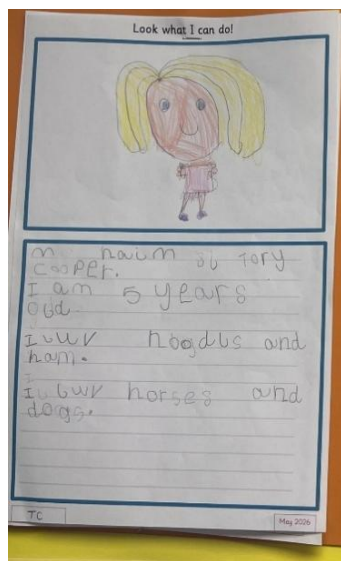 Look what I can do!
naim Tory
Cooper.
I am 5 years
Old.
I luv noodls and
ham.
I luv horses and
dogs.
TC
May 2026